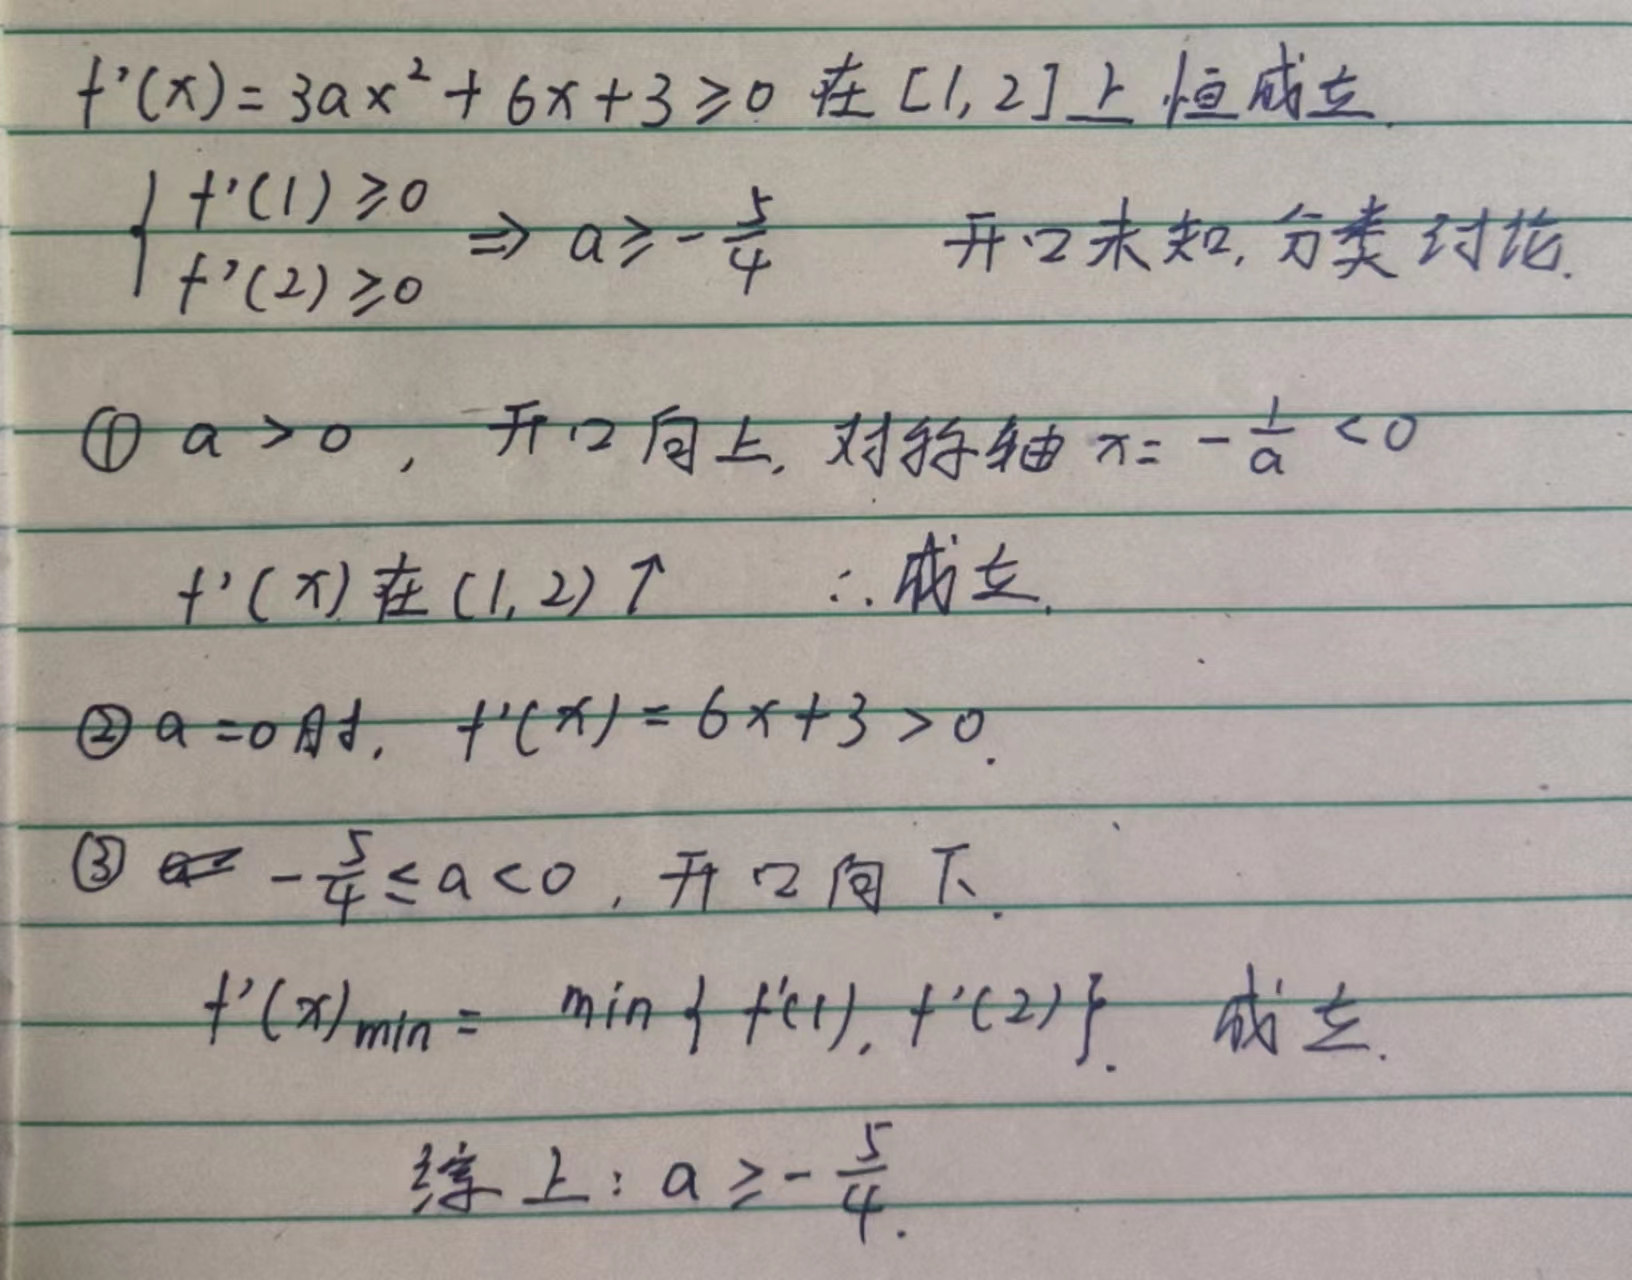 f'(x)=3ax²+6x+3≥0 在[1,2]上恒成立.
{ f'(1)≥0
f'(2)≥0 ⇒ a≥-5/4 开口未知,分类讨论.
① a>0, 开口向上, 对称轴 x=-1/a<0
f'(x)在(1,2)↑ ∴成立.
② a=0时, f'(x)=6x+3>0.
③ -5/4≤a<0, 开口向下.
f'(x)min= min{f'(1), f'(2)}. 成立.
综上: a≥-5/4.